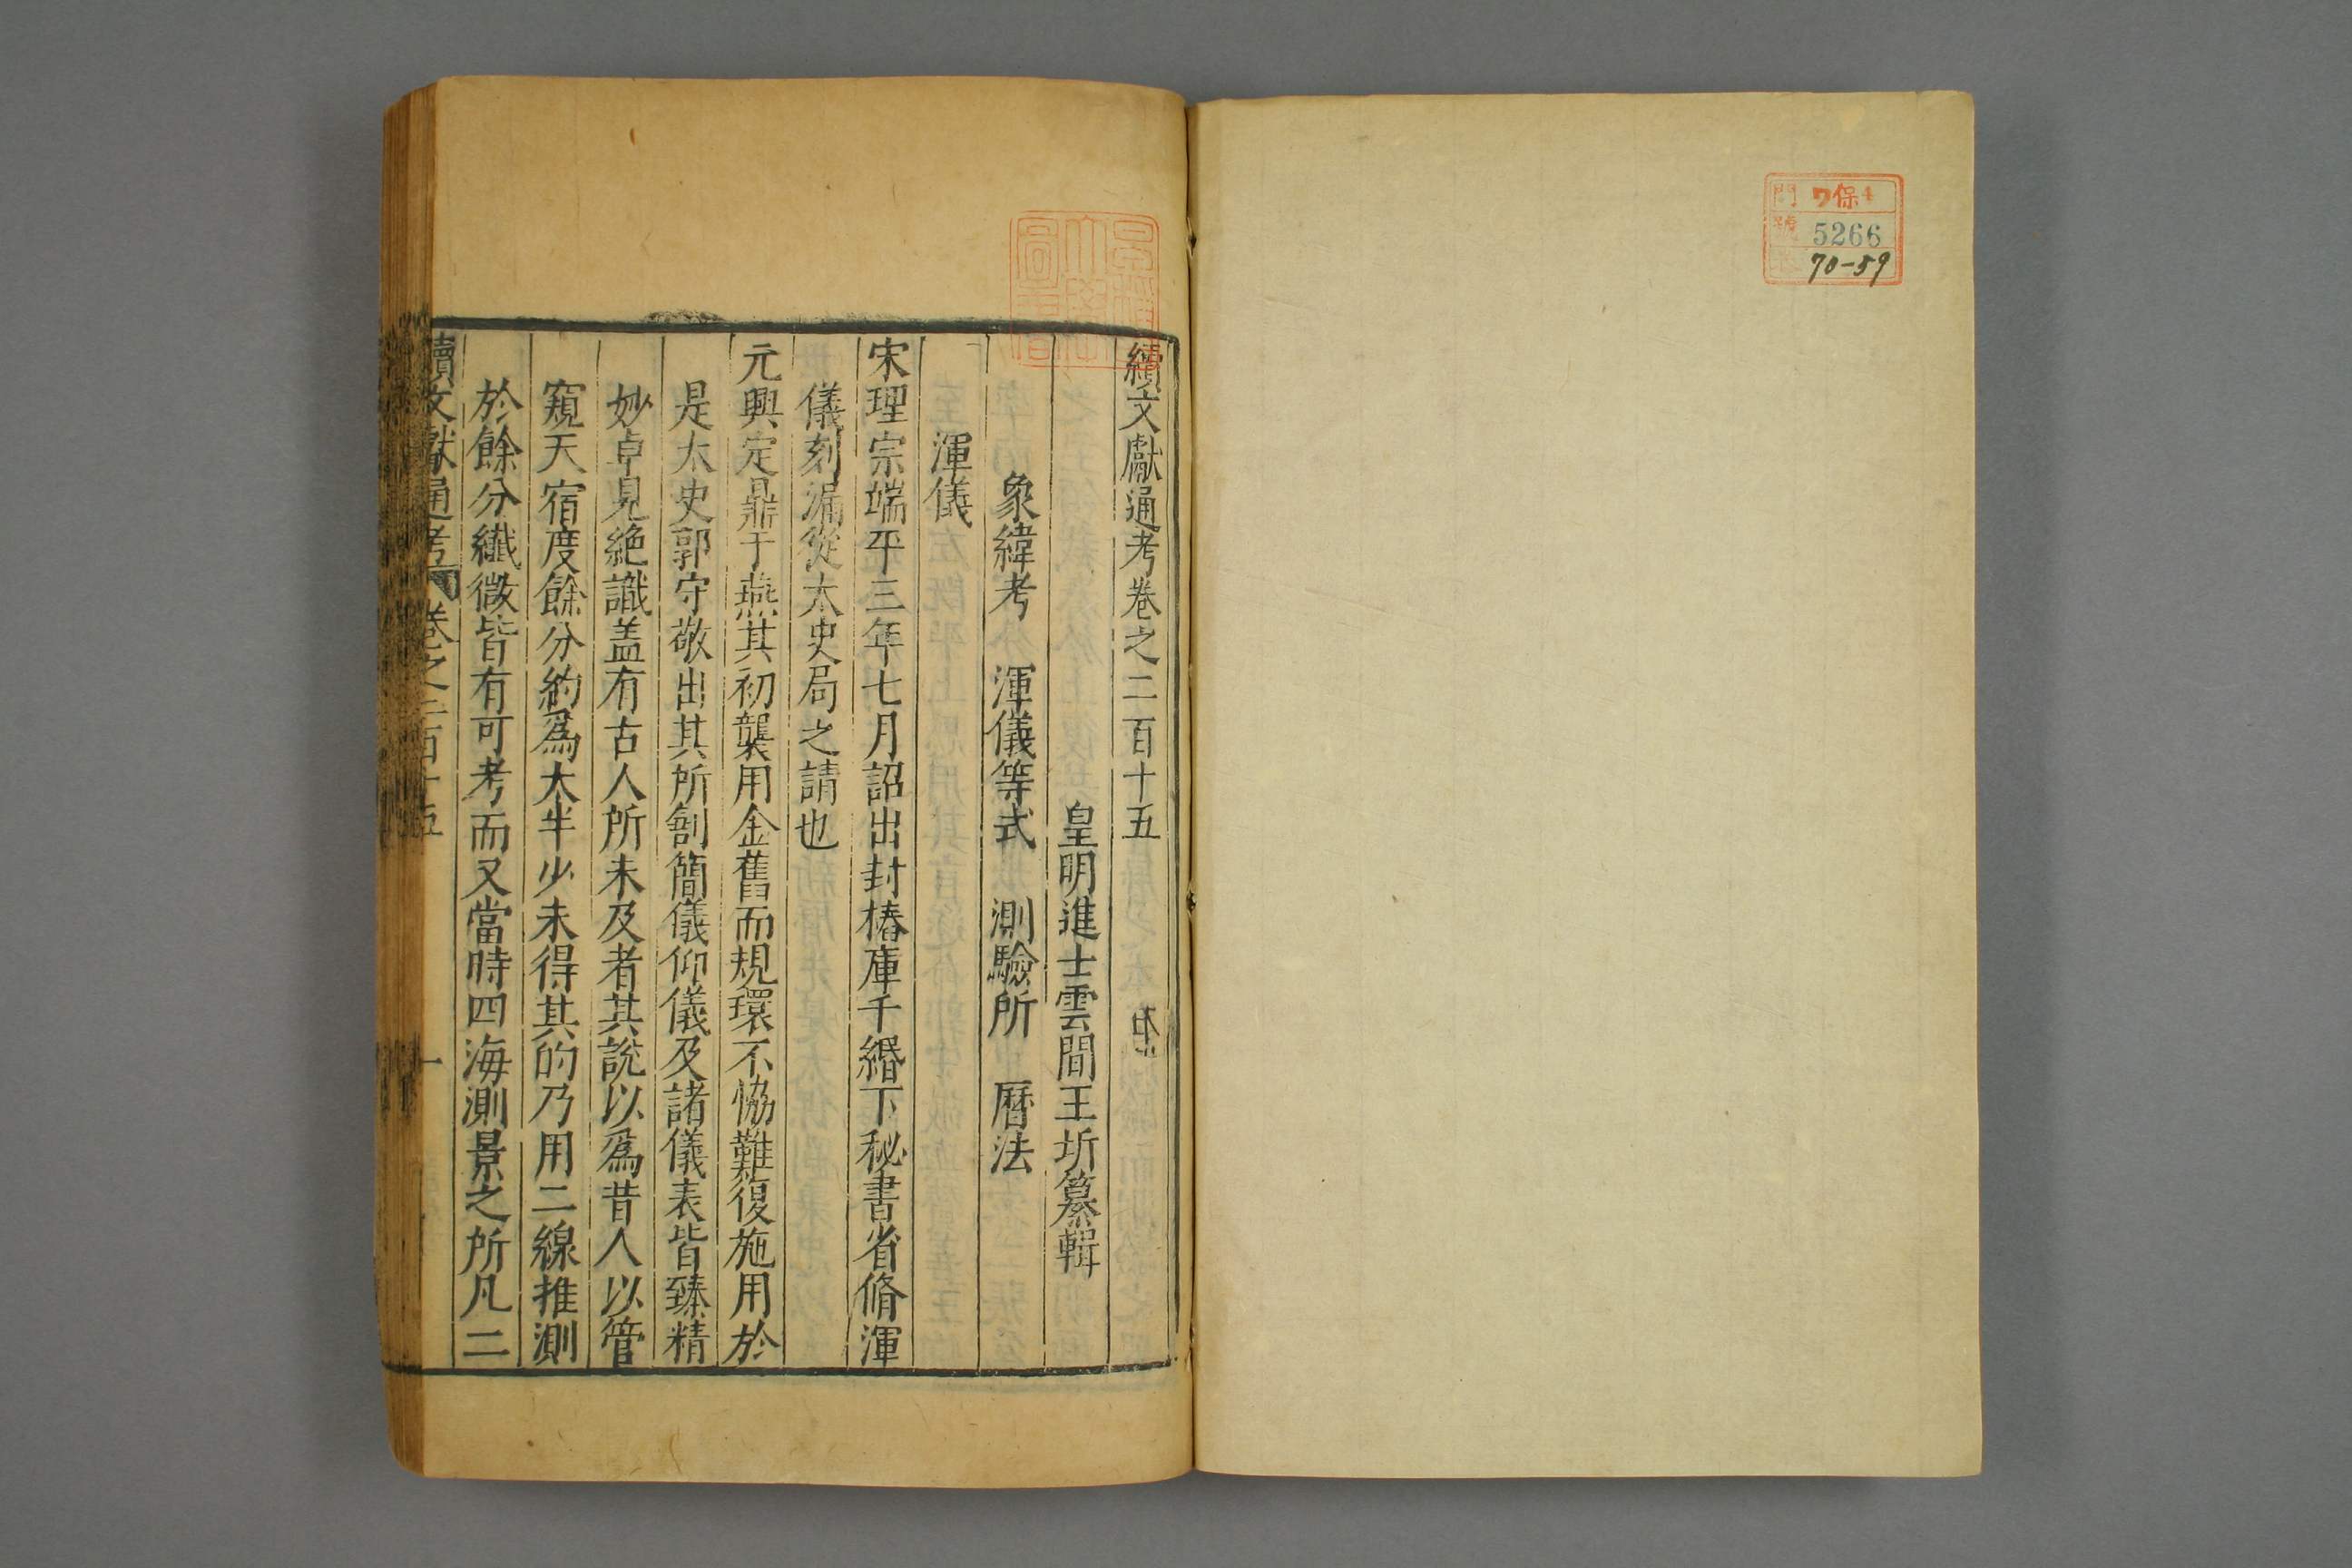 門 ワ保4
號 5266
70-59
續文獻通考卷之二百十五
皇明進士雲間王圻纂輯
象緯考 渾儀等式 測驗所 曆法
渾儀
宋理宗端平三年七月詔出封樁庫千緡下秘書省脩渾
儀刻漏從太史局之請也
元興定鼎于燕其初襲用金舊而規環不恊難復施用於
是太史郭守敬出其所創簡儀仰儀及諸儀表皆臻精
妙卓見絶識盖有古人所未及者其說以爲昔人以管
窺天宿度餘分約爲太半少未得其的乃用二線推測
於餘分纖微皆有可考而又當時四海測景之所凡二
續文獻通考 卷之二百十五 一